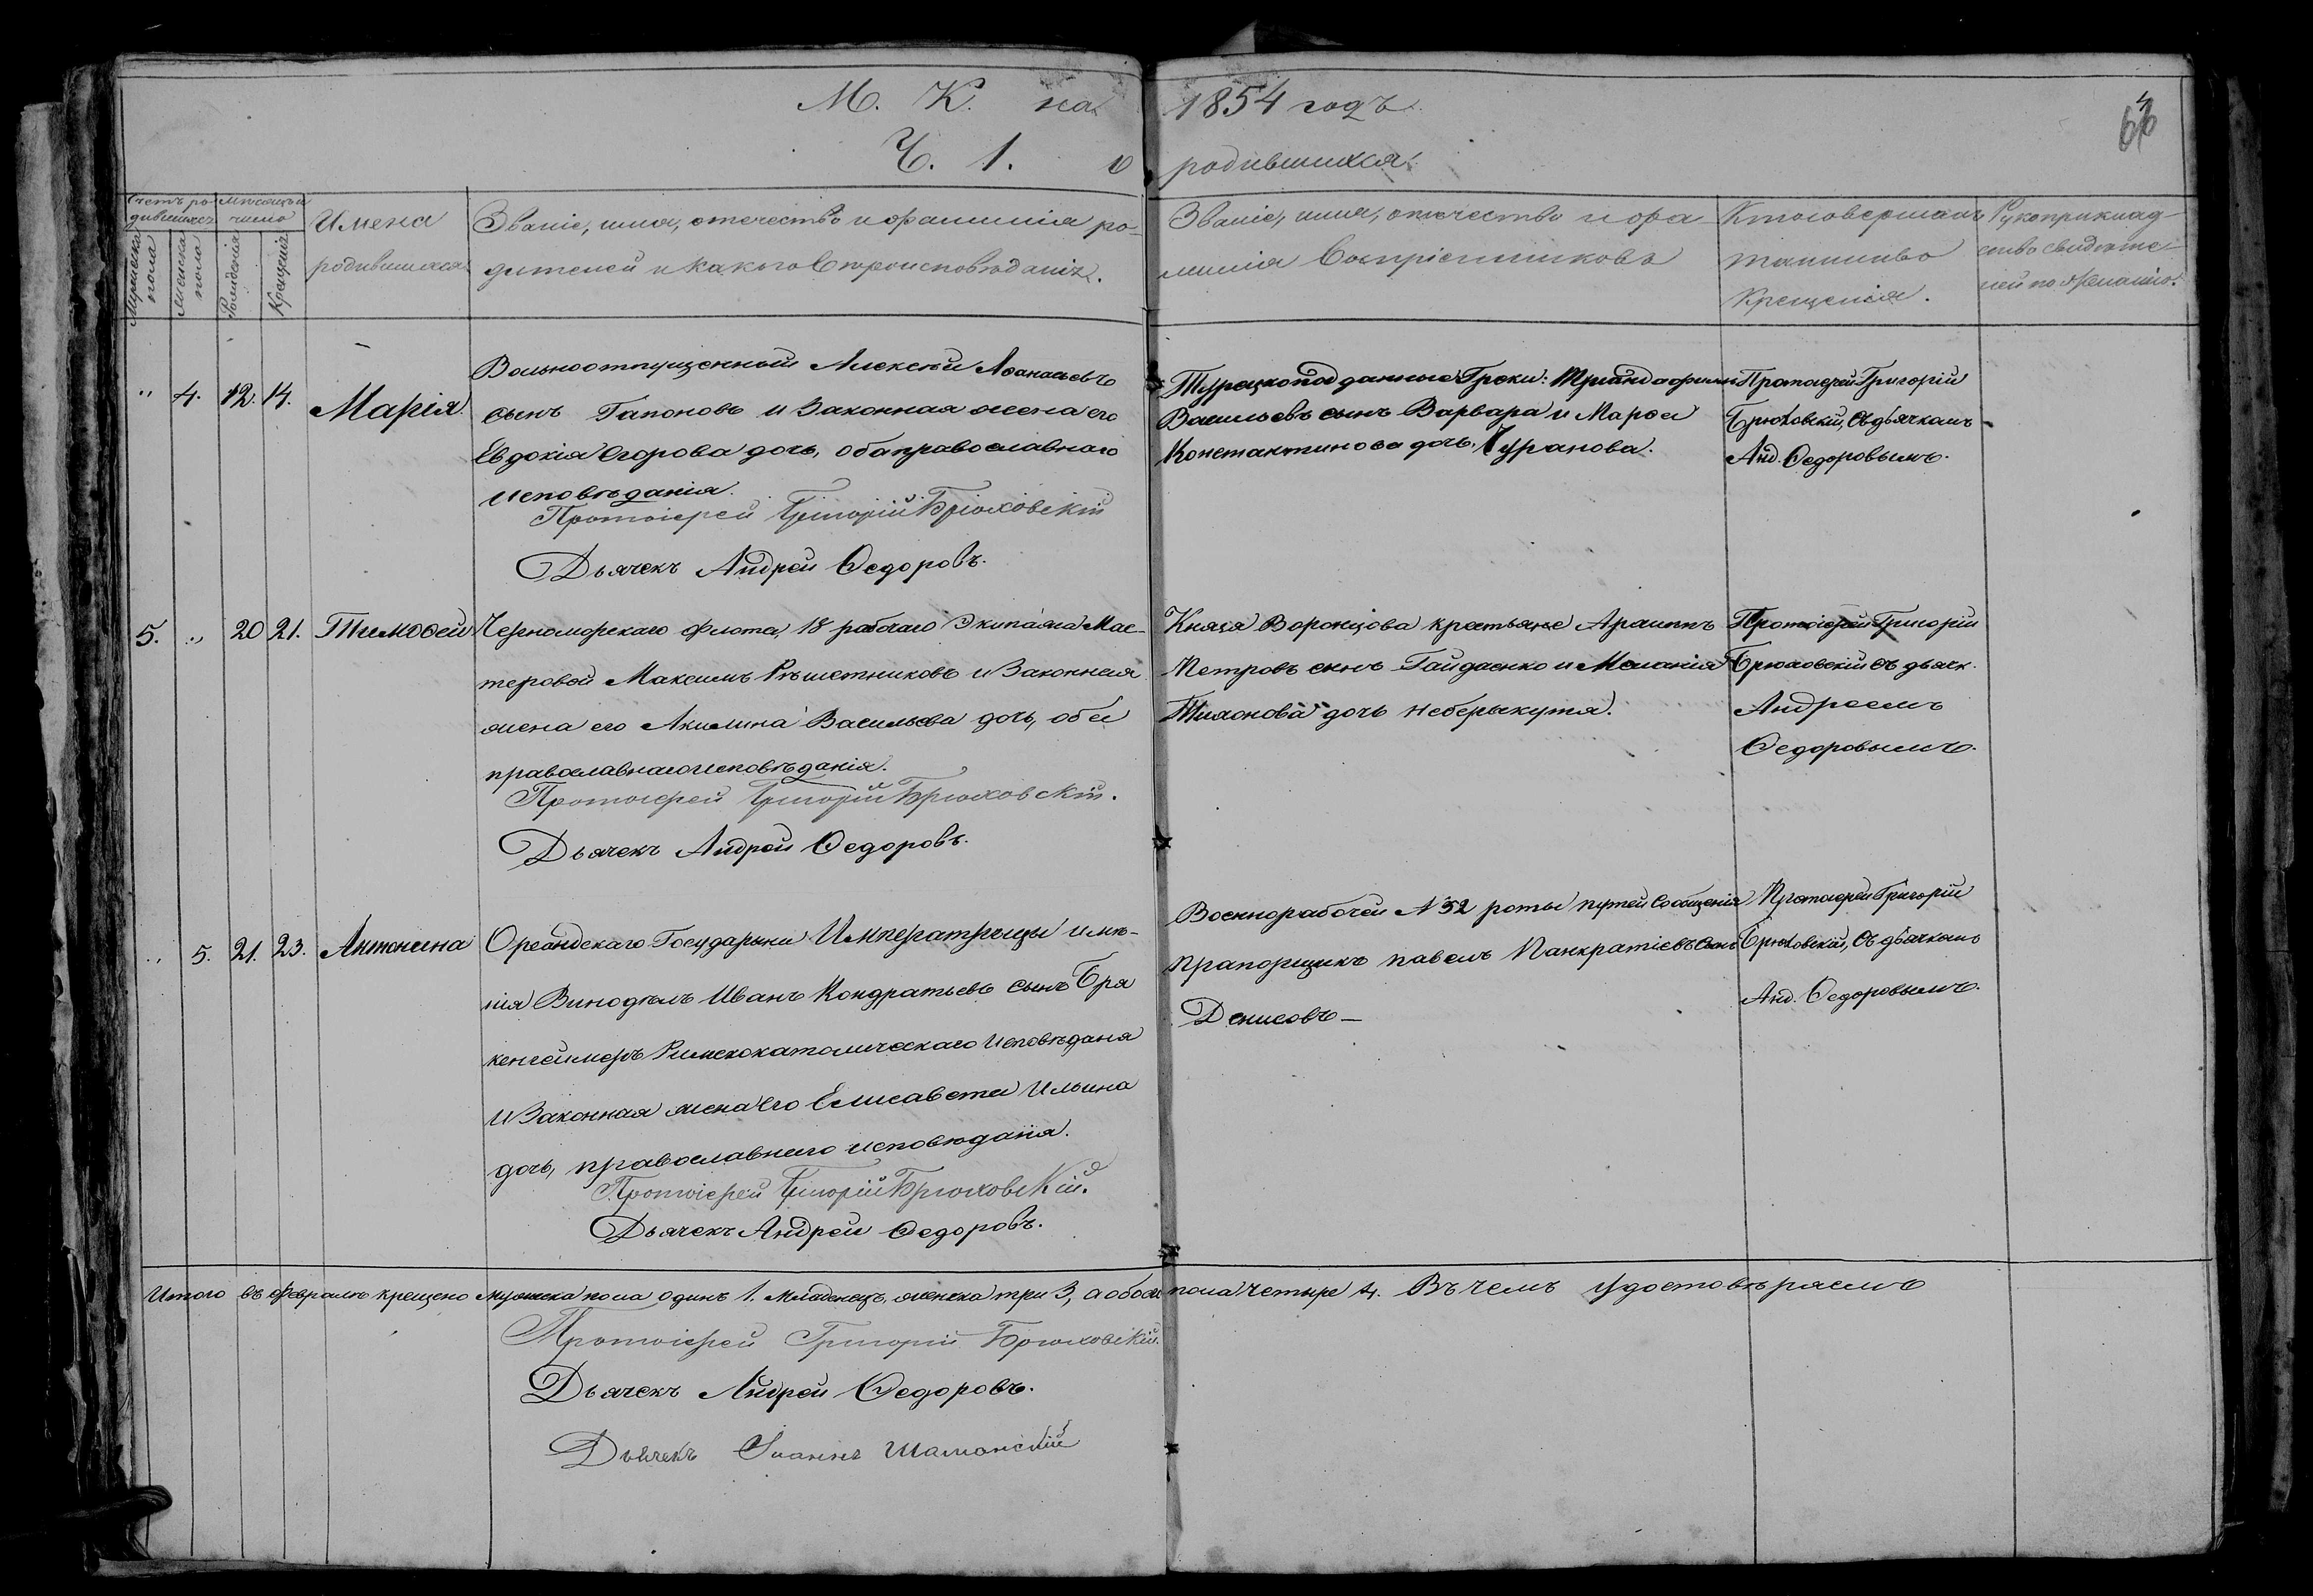 М. К. на 1854 годъ.
Ч. 1. о родившихся.
4
66
Счетъ ро-
дившихся
Мужеска
пола
Женска
пола
Месяцъ и
число
Рожденія
Крещенія
Имена
родившихся
Званіе, имя, отечество и фамилія ро-
дителей и какого вѣроисповѣданія.
Званіе, имя, отечество и фа
милія Воспріемниковъ
Кто совершалъ
таинство
Крещенія.
Рукоприклад-
ство свидѣте-
лей по желанію.
" 4. 12. 14. Марія.
Вольноотпущенный Алексѣй Аѳанасьевъ
сынъ Гапоновъ и Законная жена его
Евдокія Егорова дочь, оба православнаго
исповѣданія.
Протоіерей Григорій Брюховскій
Дьячекъ Андрей Ѳедоровъ.
Турецкоподданные Греки:
Васильевъ сынъ Варвара и Марѳа
Константинова дочь,
Протоіерей Григорій
Брюховскій, съ дьячкомъ
Анд. Ѳедоровымъ.
5. " 20 21. Тимоѳей
Черноморскаго флота, 18 рабочаго Экипажа Мас-
теровой Максимъ Рѣшетниковъ и Законная
жена его Акилина Васильева дочь, оба
православнаго исповѣданія.
Протоіерей Григорій Брюховскій.
Дьячекъ Андрей Ѳедоровъ.
Князя Воронцова крестьяне Архиппъ
Петровъ сынъ Гайдаенко и Меланія
Тихонова дочь Неберыкутя.
Протоіерей Григорій
Брюховскій съ дьячк.
Андреемъ
Ѳедоровымъ.
" 5. 21. 23. Антонина
Ореандскаго Государыни Императрицы имѣ-
нія Винодѣлъ Иванъ Кондратьевъ сынъ Бря
кенгеймеръ Римскокатолическаго исповѣданя
и Законная жена его Елисавета Ильина
дочь, православнаго исповѣданія.
Протоіерей Григорій Брюховскій.
Дьячекъ Андрей Ѳедоровъ.
Военнорабочей № 52 роты путей Сообщенія
Прапорщикъ Павелъ Панкратіевъ сынъ
Денисовъ —
Протоіерей Григорій
Брюховскій, съ дьячкомъ
Анд. Ѳедоровымъ.
Итого въ февралѣ крещено мужеска пола одинъ 1. младенецъ, женска три 3, а обоего пола четыре 4. Въ чемъ удостовѣряемъ
Протоіерей Григорій Брюховскій.
Дьячекъ Андрей Ѳедоровъ.
Дьячекъ Іоаннъ Шаманскій